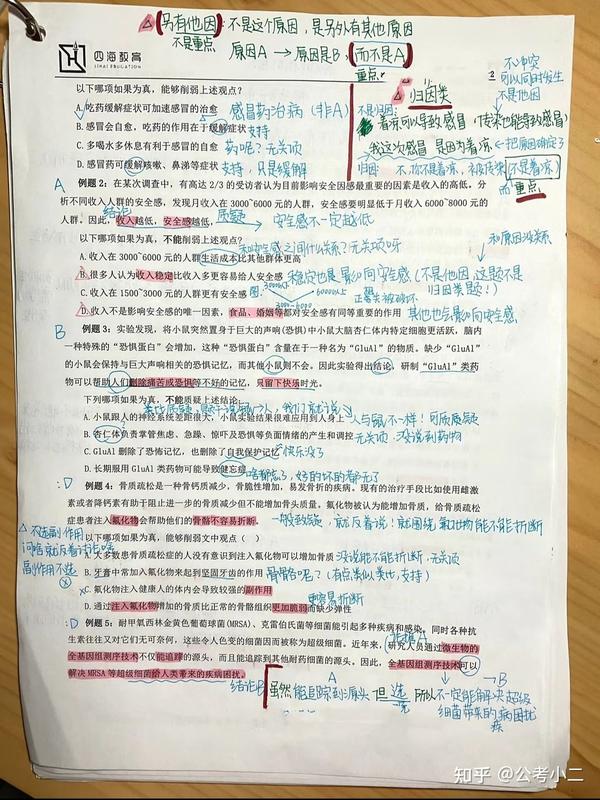 另有他因：不是这个原因，是另外有其他原因
不是重点
原因A → 原因是B，而不是A
重点
四海教育
SIHAI EDUCATION
归因类
不冲突
可以同时发生
不是他因
不是归因：
着凉可以导致感冒，传染也能导致感冒
我这次感冒是因为着凉
把原因确定了
归因
不是着凉
而 重点
以下哪项如果为真，能够削弱上述观点？
A.吃药缓解症状可加速感冒的治愈 感冒药治病（非A）
B.感冒会自愈，吃药的作用在于缓解症状 支持
C.多喝水多休息有利于感冒的自愈 药呢？无关项
D.感冒药可缓解咳嗽、鼻涕等症状 支持，只是缓解
A 例题 2：在某次调查中，有高达 2/3 的受访者认为目前影响安全因感最重要的因素是收入的高低。分
析不同收入人群的安全感，发现月收入在 3000～6000 元的人群，安全感要明显低于月收入 6000～8000 元的
人群。因此，收入越低，安全感越低。
结论
质疑 → 安全感不一定越低
以下哪项如果为真，不能削弱上述观点？
A.收入在 3000～6000 元的人群生活成本比其他群体更高
和安全感之间什么关系？无关项呀
和原因没关系
B.很多人认为收入稳定比收入多更容易给人安全感 稳定也是影响安全感（不是他因，这题不是
归因类题！）
C.收入在 1500～3000 元的人群更有安全感
D.收入不是影响安全感的唯一因素，食品、婚姻等都对安全感有同等重要的作用 其他也会影响安全感
B 例题 3：实验发现，将小鼠突然置身于巨大的声响(恐惧)中小鼠大脑杏仁体内特定细胞更活跃，脑内
一种特殊的“恐惧蛋白”会增加，这种“恐惧蛋白”含量在于一种名为“GluAl”的物质。缺少“GluAl”
的小鼠会保持与巨大声响相关的恐惧记忆，而其他小鼠则不会。因此实验得出结论，研制“GluAl”类药
物可以帮助人们删除痛苦或恐惧等不好的记忆，只留下快乐时光。
下列哪项如果为真，不能质疑上述结论：
A.小鼠跟人的神经系统差距很大，小鼠实验结果很难应用到人身上 人与鼠不一样！可质疑
B.杏仁体负责掌管焦虑、急躁、惊吓及恐惧等负面情绪的产生和调控 无关项，没说到药物
C.GluAl 删除了恐惧记忆，也删除了自我保护记忆 快乐没了
D.长期服用 GluAl 类药物可能导致健忘症 啥都忘了，好的坏的都忘了
D 例题 4：骨质疏松是一种骨钙质减少，骨脆性增加，易发骨折的疾病。现有的治疗手段比如使用雌激
素或者降钙素有助于阻止进一步的骨质减少但不能增加骨头质量。氟化物被认为能增加骨质，给骨质疏松
症患者注入氟化物会帮助他们的骨骼不容易折断。 一般致疑，就反着说！就围绕氟化物能不能折断
以下哪项如果为真，能够削弱文中观点（ ）
不选副作用
副作用不选
A.大多数患骨质疏松症的人没有意识到注入氟化物可以增加骨质 没说能不能折断，无关项
B.牙膏中常加入氟化物来起到坚固牙齿的作用 骨骼呢？（有点类似类比，支持）
C.氟化物注入健康人的体内会导致较强的副作用
更容易折断
D.通过注入氟化物增加的骨质比正常的骨骼组织更加脆弱而缺少弹性
D 例题 5：耐甲氧西林金黄色葡萄球菌(MRSA)、克雷伯氏菌等细菌能引起多种疾病和感染，同时各种抗
生素往往又对它们无可奈何，这些令人色变的细菌因而被称为超级细菌。近年来，研究人员通过微生物的
全基因组测序技术不仅能追踪的源头，而且能追踪到其他耐药细菌的源头。因此，全基因组测序技术可以
解决 MRSA 等超级细菌给人类带来的疾病困扰。
结论B
A
B
虽然 能追踪到源头 但 选 所以 不一定能解决超级
细菌带来的疾病困扰
知乎 @公考小二